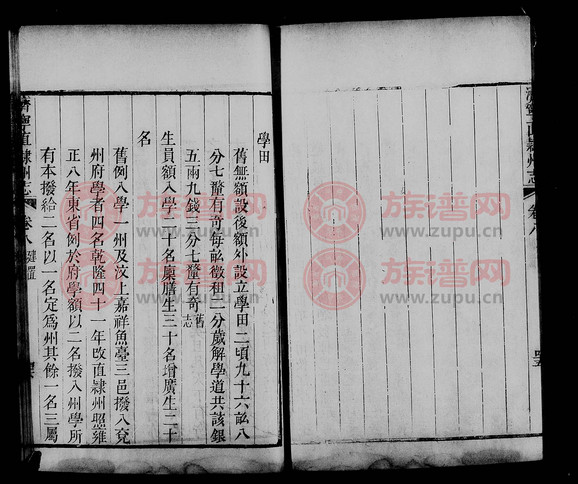 濟寧直隸州志
卷八
四五
學田
舊無額設後額外設立學田二頃九十六畝八
分七釐有奇每畝徵租二分歲解學道共該銀
五兩九錢三分七釐有奇舊志
生員額入學二十名廩膳生三十名增廣生二十
名
舊例入學一州及汶上嘉祥魚臺三邑撥入兗
州府學者四名乾隆四十一年改直隸州照雍
正八年東省例於府學額以二名撥入州學所
有本撥給二名以一名定爲州其餘一名三屬
濟寧直隸州志
卷八
建置
族谱网
www.zupu.cn
族谱网
www.zupu.cn
族谱网
www.zupu.cn
族谱网
www.zupu.cn